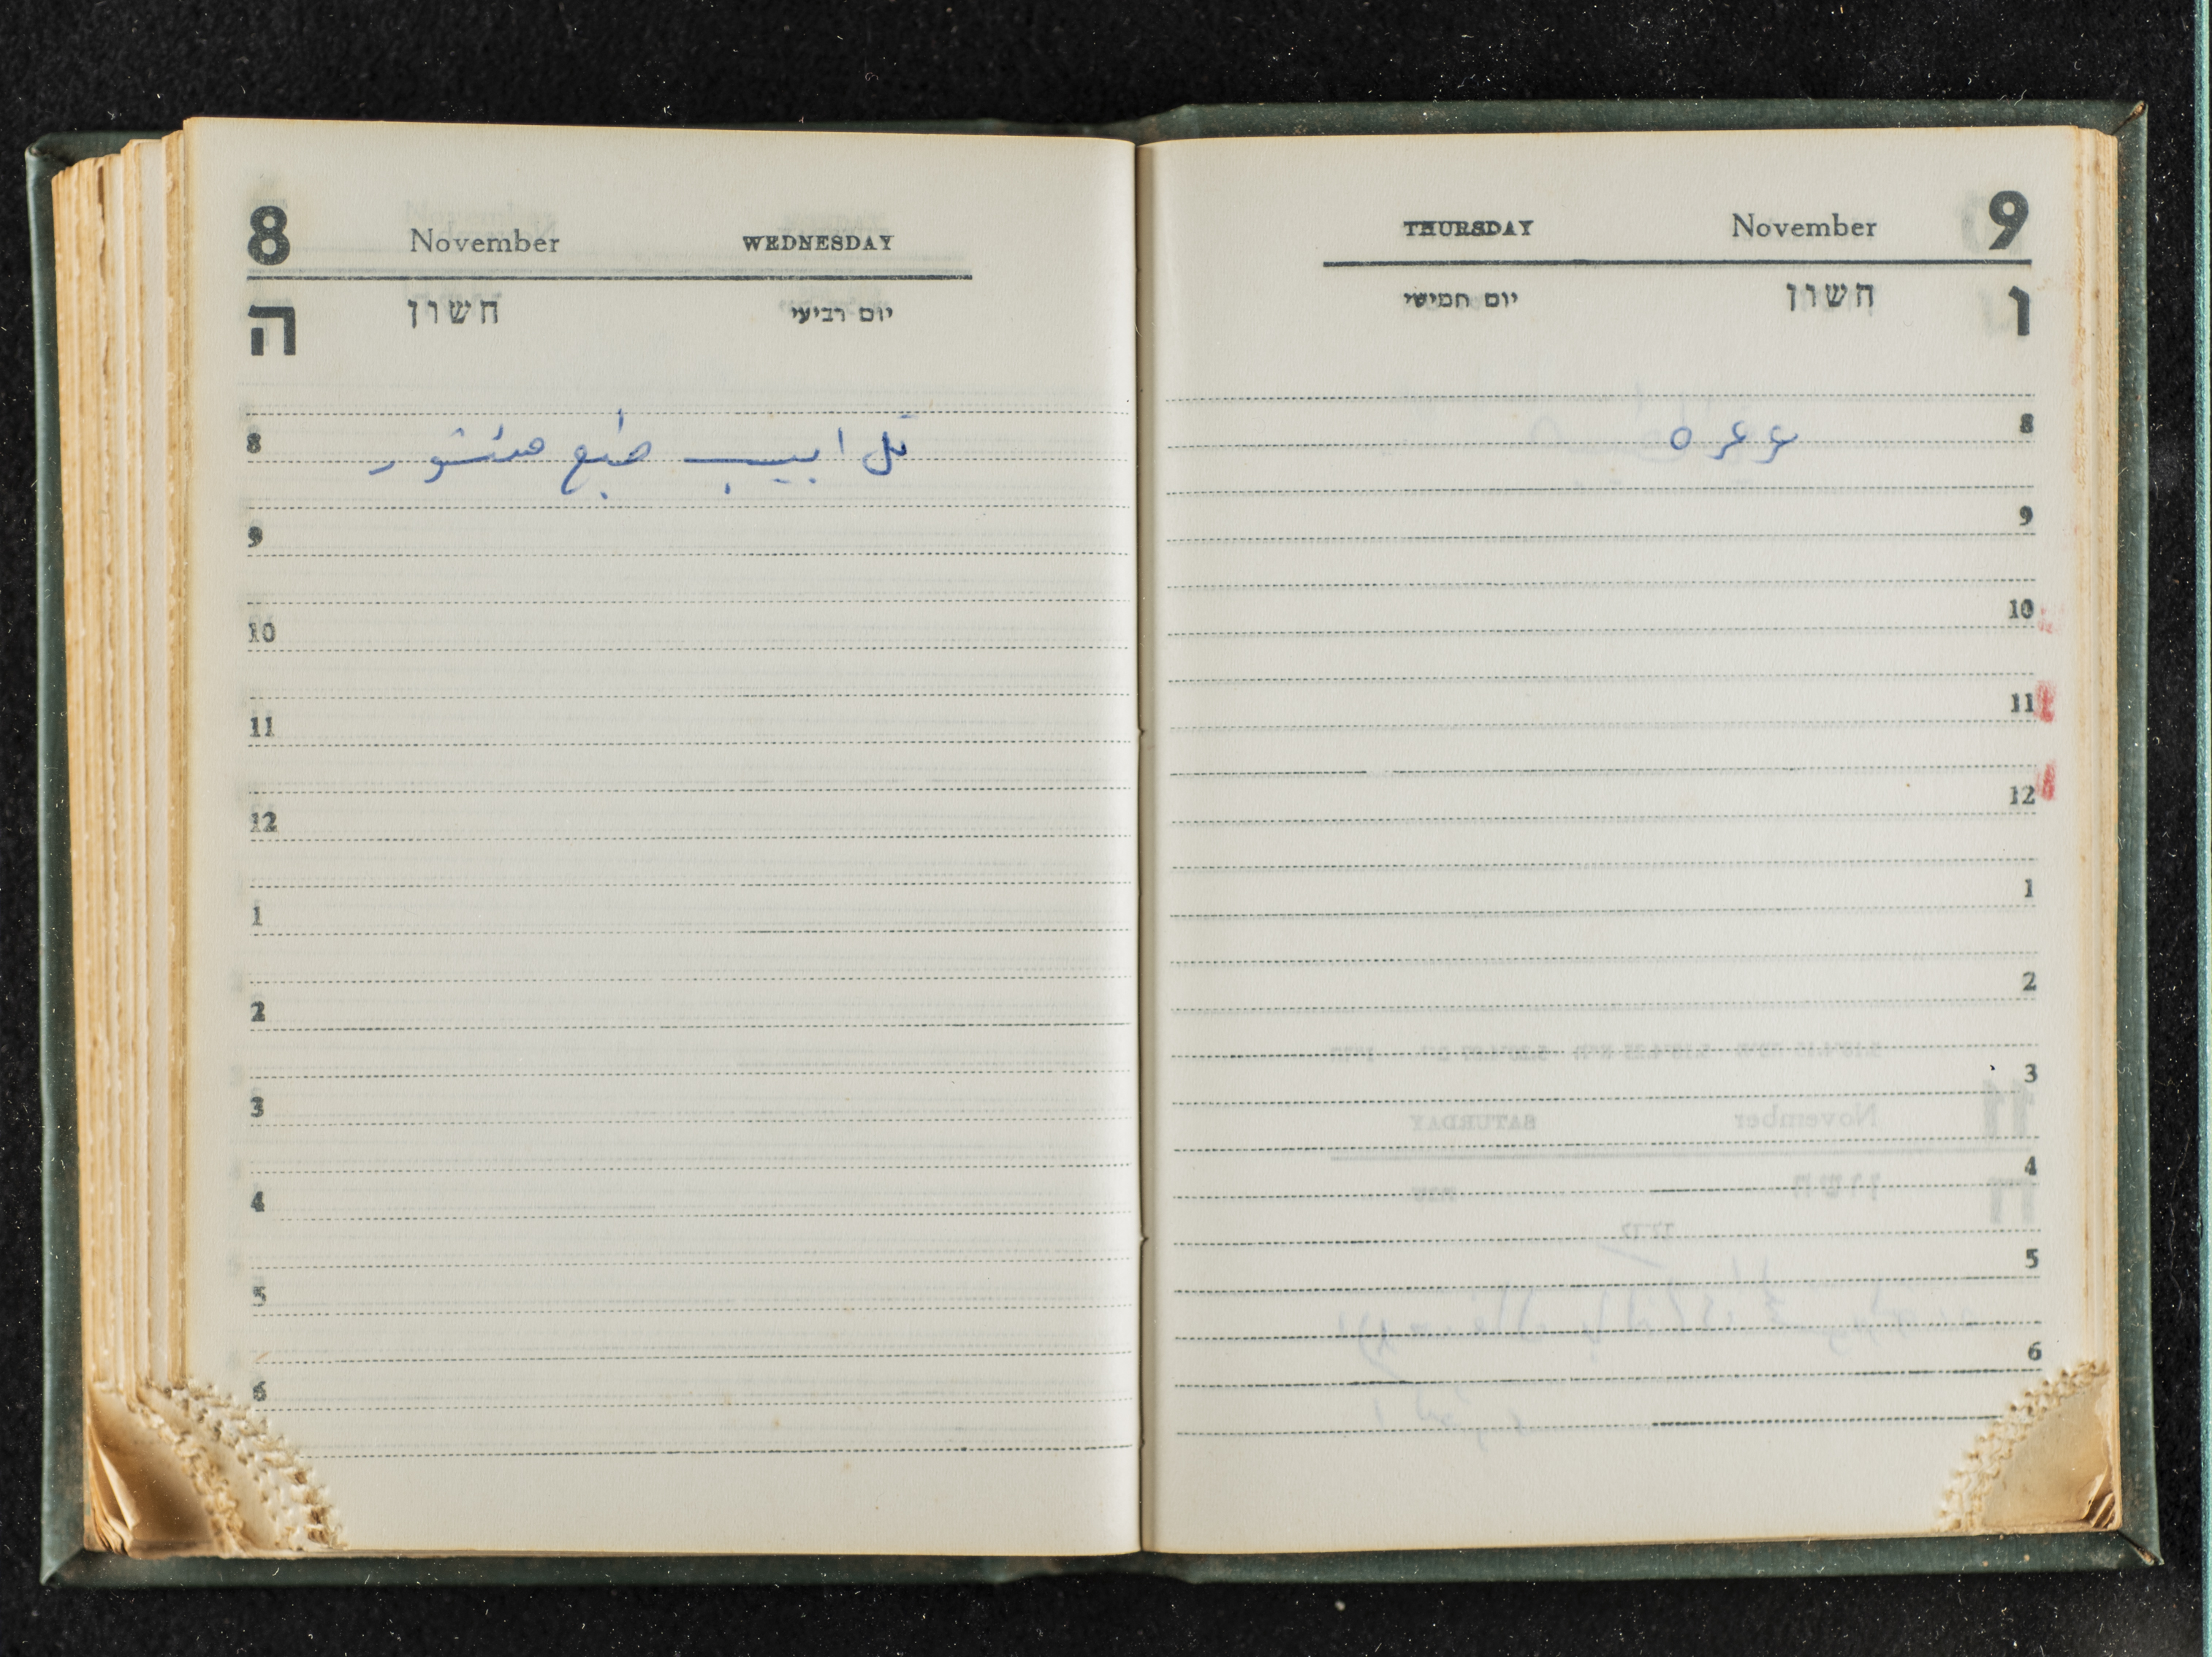 8 November WEDNESDAY
ה חשון יום רביעי
8 تل ابيب طبع منشور
9
10
11
12
1
2
3
4
5
6
THURSDAY November 9
יום חמישי חשון ו
عرعره 8
9
10
11
12
1
2
3
4
5
6